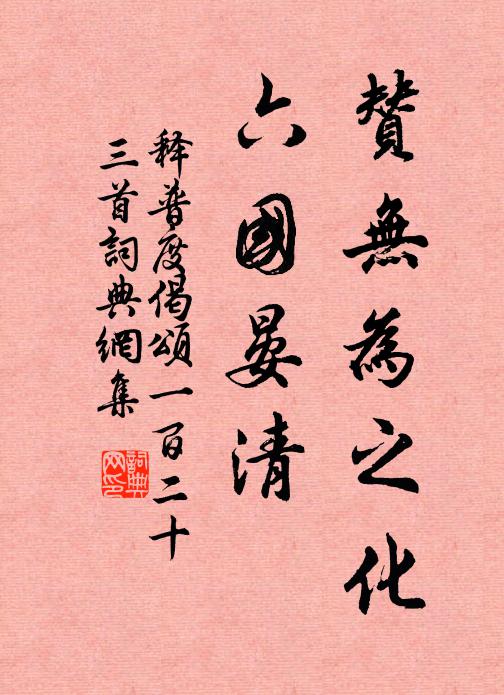 賛無為之化
六國晏清
释普度偈頌一百二十
三首詞典網集
詞典
网印